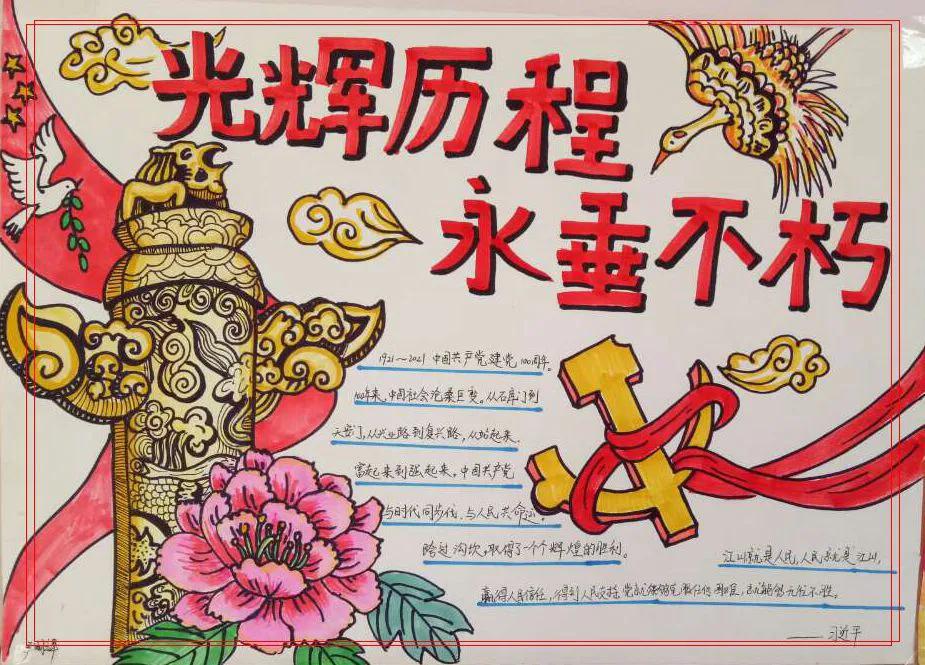 光辉历程
永垂不朽
1921～2021 中国共产党建党100周年。
100年来,中国社会沧桑巨变。从石库门到
天安门,从兴业路到复兴路,从站起来.
富起来到强起来,中国共产党
与时代同步伐.与人民共命运。
跨过沟坎,取得了一个个辉煌的胜利。
江山就是人民,人民就是江山,
赢得人民信任,得到人民支持,党就能够克服任何困难,就能够无往不胜。
——习近平